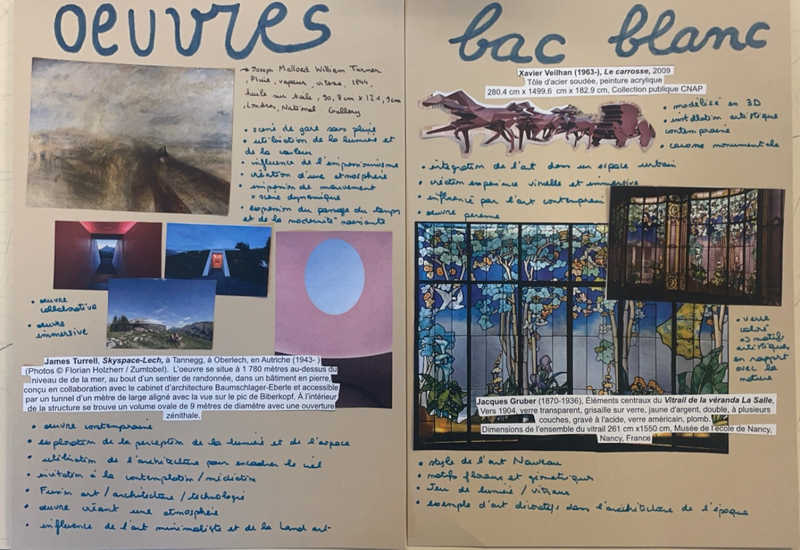 oeuvres
→ Joseph Mallord William Turner
, Pluie, vapeur, vitesse, 1844,
huile sur toile, 90,8 cm x 121,9cm
, Londres, National Gallery
• scène de gare sans pluie
• utilisation de la lumière et
de la couleur
• influence de l'impressionnisme
• création d'une atmosphère
• impression de mouvement
→ scène dynamique
• expression du passage du temps
et de la modernité naissante
• œuvre
collaborative
• œuvre
immersive
James Turrell, Skyspace-Lech, à Tannegg, à Oberlech, en Autriche (1943- )
(Photos © Florian Holzherr / Zumtobel). L'oeuvre se situe à 1 780 mètres au-dessus du
niveau de de la mer, au bout d'un sentier de randonnée, dans un bâtiment en pierre,
conçu en collaboration avec le cabinet d'architecture Baumschlager-Eberle et accessible
par un tunnel d'un mètre de large aligné avec la vue sur le pic de Biberkopf. À l'intérieur
de la structure se trouve un volume ovale de 9 mètres de diamètre avec une ouverture
zénithale.
• œuvre contemporaine
• exploration de la perception de la lumière et de l'espace
• utilisation de l'architecture pour encadrer le ciel
• invitation à la contemplation / méditation
• Fusion art / architecture / technologie
• œuvre créant une atmosphère
• influence de l'art minimaliste et de la Land art
bac blanc
Xavier Veilhan (1963-), Le carrosse, 2009
Tôle d'acier soudée, peinture acrylique
280.4 cm x 1499.6 cm x 182.9 cm, Collection publique CNAP
• modélisé en 3D
• installation artistique
contemporaine
• monumentale
• intégration de l'art dans un espace urbain
• création expérience visuelle et immersive
• influencé par l'art contemporain
• œuvre pérenne
• verre
coloré
→ motifs
artistiques
en rapport
avec la
Jacques Gruber (1870-1936), Éléments centraux du Vitrail de la véranda La Salle,
Vers 1904, verre transparent, grisaille sur verre, jaune d'argent, double, à plusieurs
couches, gravé à l'acide, verre américain, plomb.
Dimensions de l'ensemble du vitrail 261 cm x1550 cm, Musée de l'école de Nancy,
Nancy, France
• style de l'art Nouveau
• motifs floraux et géométriques
• Jeu de lumière / vitraux
• exemple d'art décoratifs dans l'architecture de l'époque